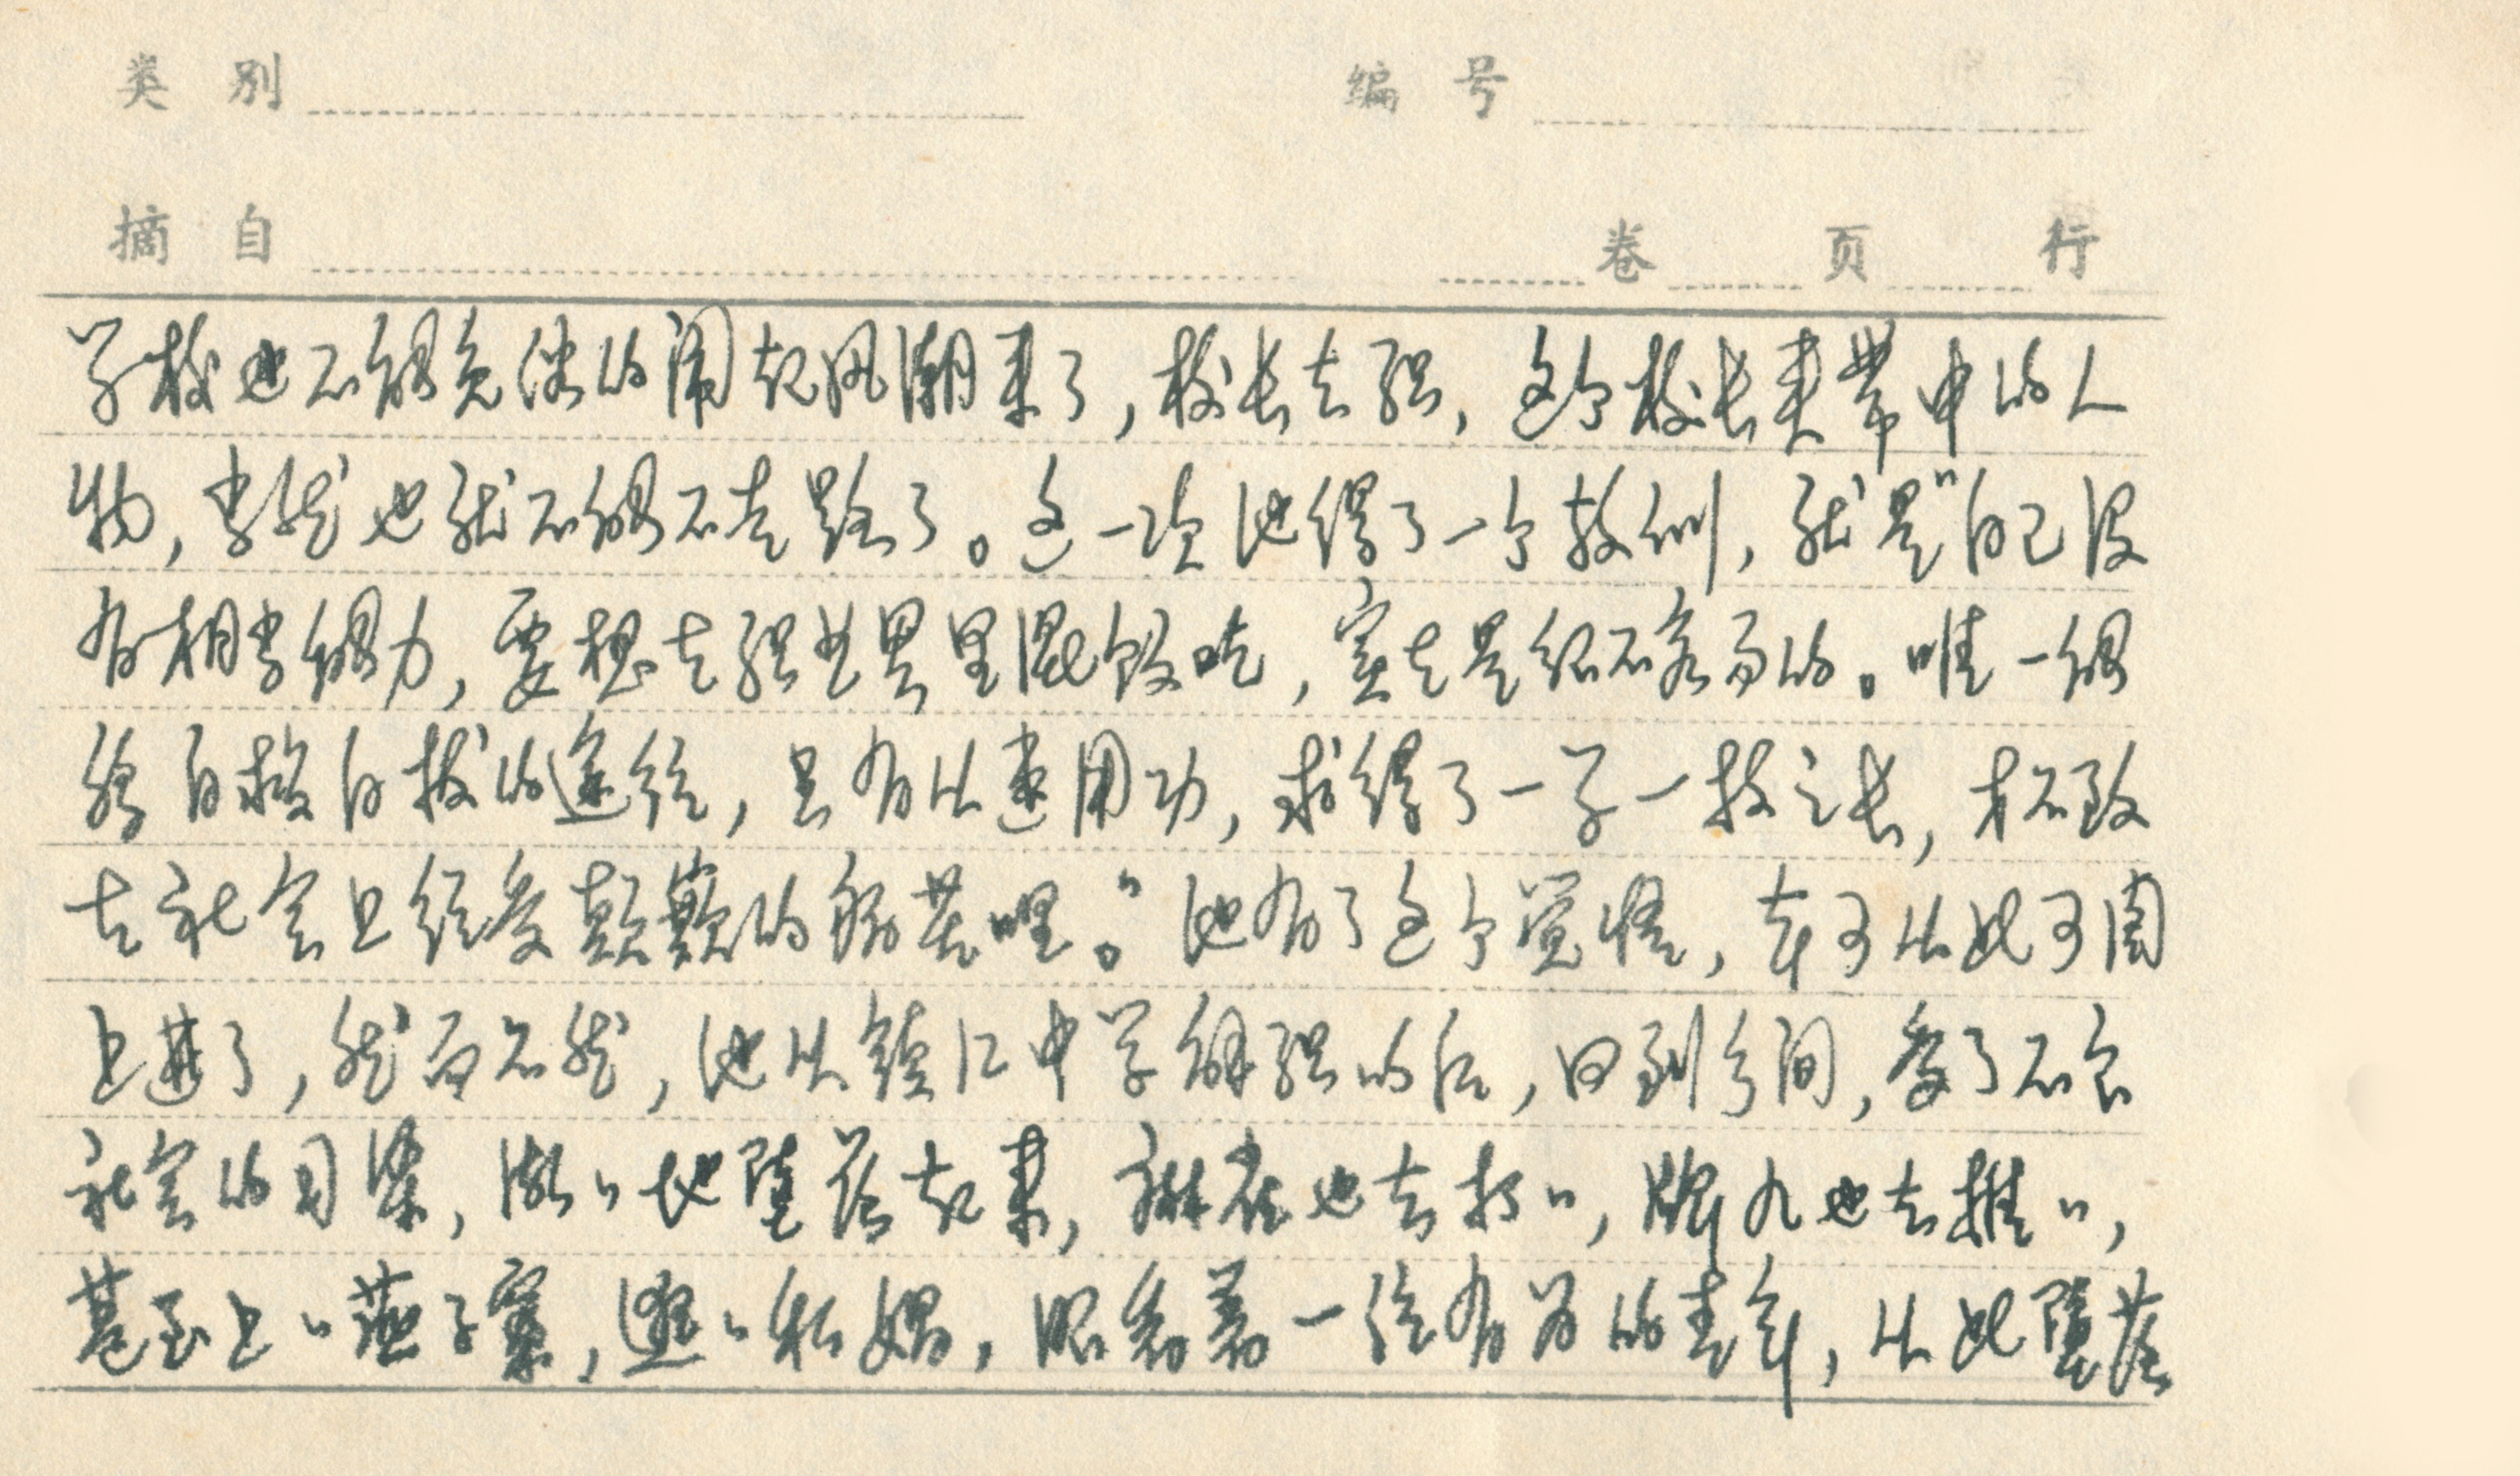 类别 编号
摘自 卷 页 行
学校也不能免俗的闹起风潮来了，校长去职，这个校长夹带中的人
物，当然也就不能不走路了。这一次他得了一个教训，就是"自己没
有相当能力，要想在职业界里混饭吃，实在是绝不容易的。唯一能
够自救自拔的途径，只有从速用功，求得了一学一技之长，才不致
在社会上经受颠簸的痛苦哩。"他有了这个觉悟，本可从此可图
上进了，然而不然，他从镇江中学解职以后，回到乡间，受了不良
社会的习染，渐〻地堕落起来，麻雀也去打〻，牌九也去推〻，
甚至上〻燕子窠，逛〻私娼，眼看着一位有为的青年，从此堕落